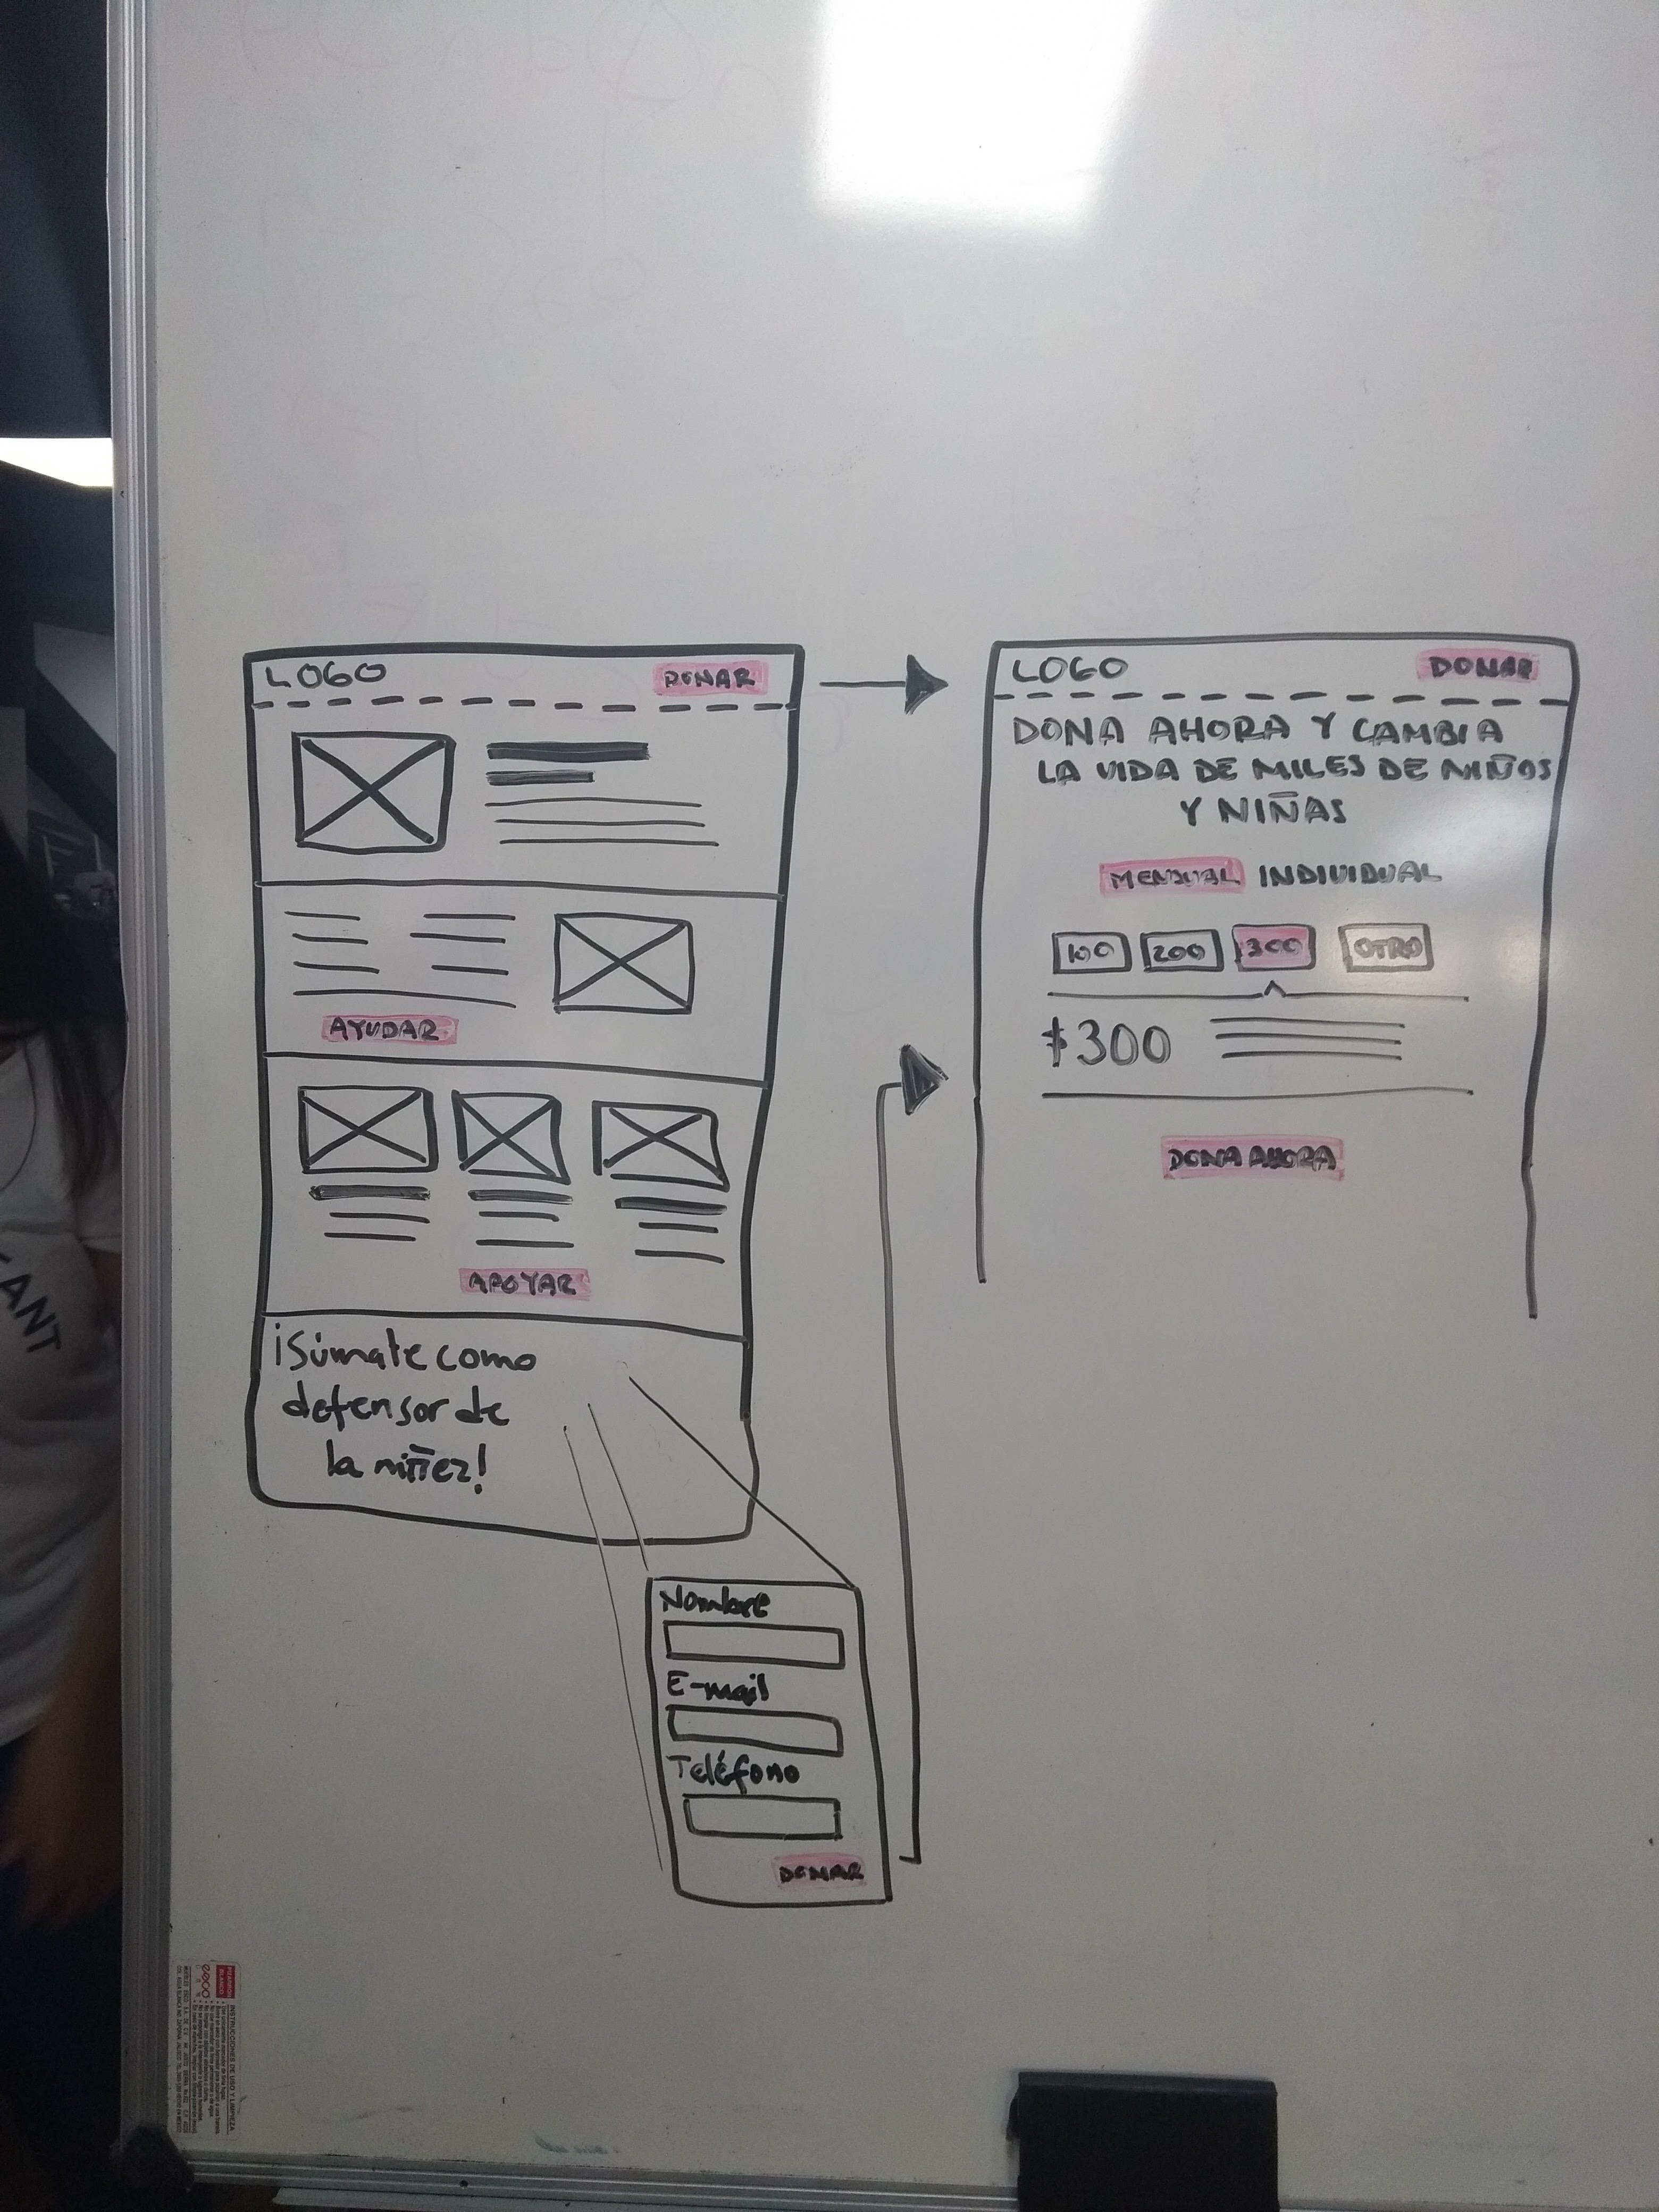 LOGO
DONAR
AYUDAR
APOYAR
¡Súmate como
defensor de
la niñez!
Nombre
E-mail
Teléfono
DONAR
LOGO
DONAR
DONA AHORA Y CAMBIA
LA VIDA DE MILES DE NIÑOS
Y NIÑAS
MENSUAL INDIVIDUAL
100 200 300 OTRO
$300
DONA AHORA
ANT
PIZARRON
BLANCO
INSTRUCCIONES DE USO Y LIMPIEZA